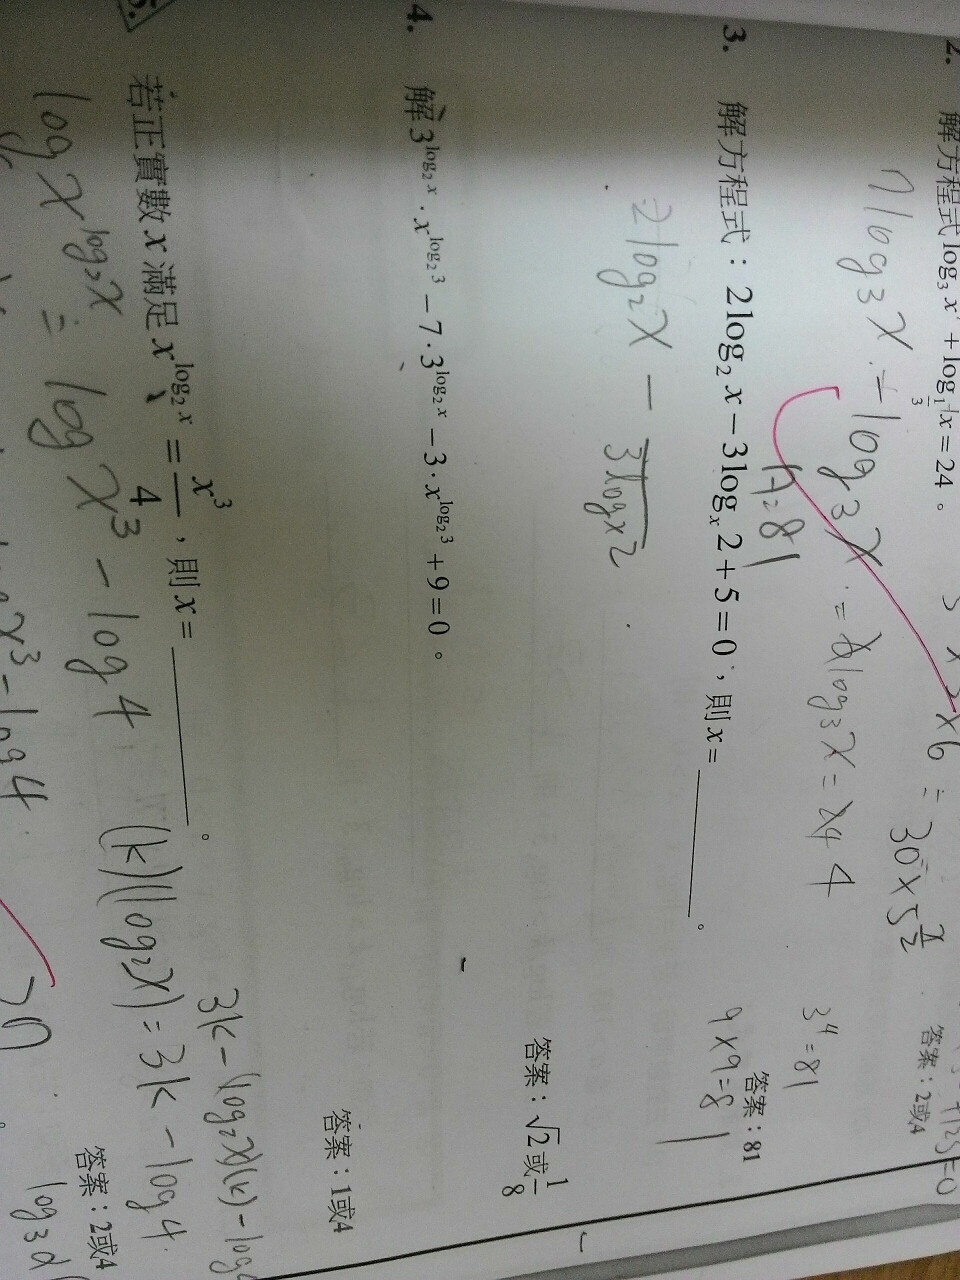 2. 解方程式 log₃ x⁷ + log_{1/3} x = 24。
答案：2或4
7log₃x - log₃x = 6log₃x = 24 4
3⁴ = 81
x = 81
9 × 9 = 81
答案：81
3. 解方程式：2log₂ x − 3logₓ 2 + 5 = 0，則 x = ________。
2log₂x −
3logx2
答案：√2或1/8
4. 解 3^{log₂ x}．x^{log₂ 3} − 7．3^{log₂ x} − 3．x^{log₂ 3} + 9 = 0。
答案：1或4
若正實數 x 滿足 x^{log₂ x} = x³/4，則 x = ________。
log x^{log₂x} = log x³ − log 4
(k)(log₂x) = 3k − log 4
3k − (log₂x)(k) − log
答案：2或4